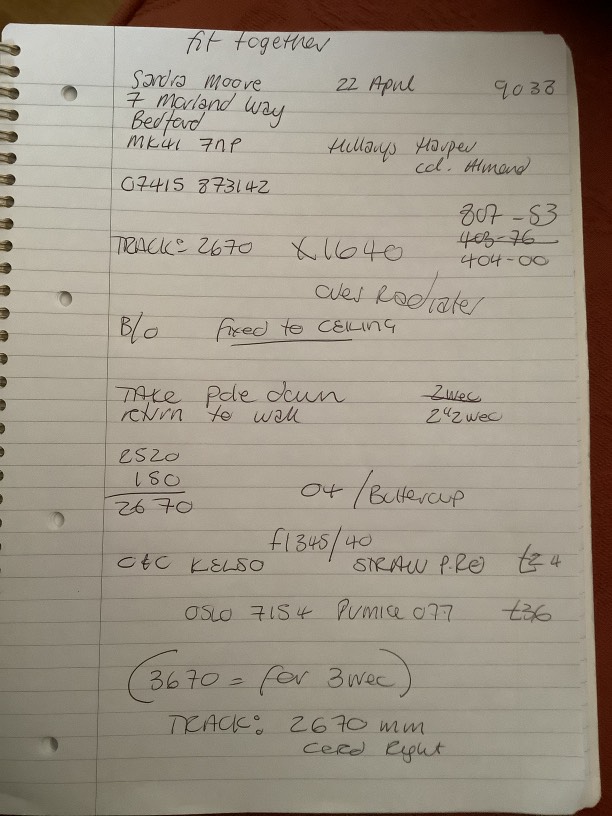 fit together
Sandra Moore 22 April 9038
7 Morland Way
Bedford
MK41 7NP Hillarys Harper
col. Almond
07415 873142
807-53
403-76
TRACK: 2670 X 1640 404-00
over Radiater
B/o fixed to CEILING
TAKE pole down 2wec
return to wall 2½wec
2520
150
2670
04 / Buttercup
f1345/40
C&C KELSO STRAW P.Re £24
OSLO 7154 PUMICE 077 £36
(3670 = for 3wec)
TRACK: 2670 mm
Cord Right